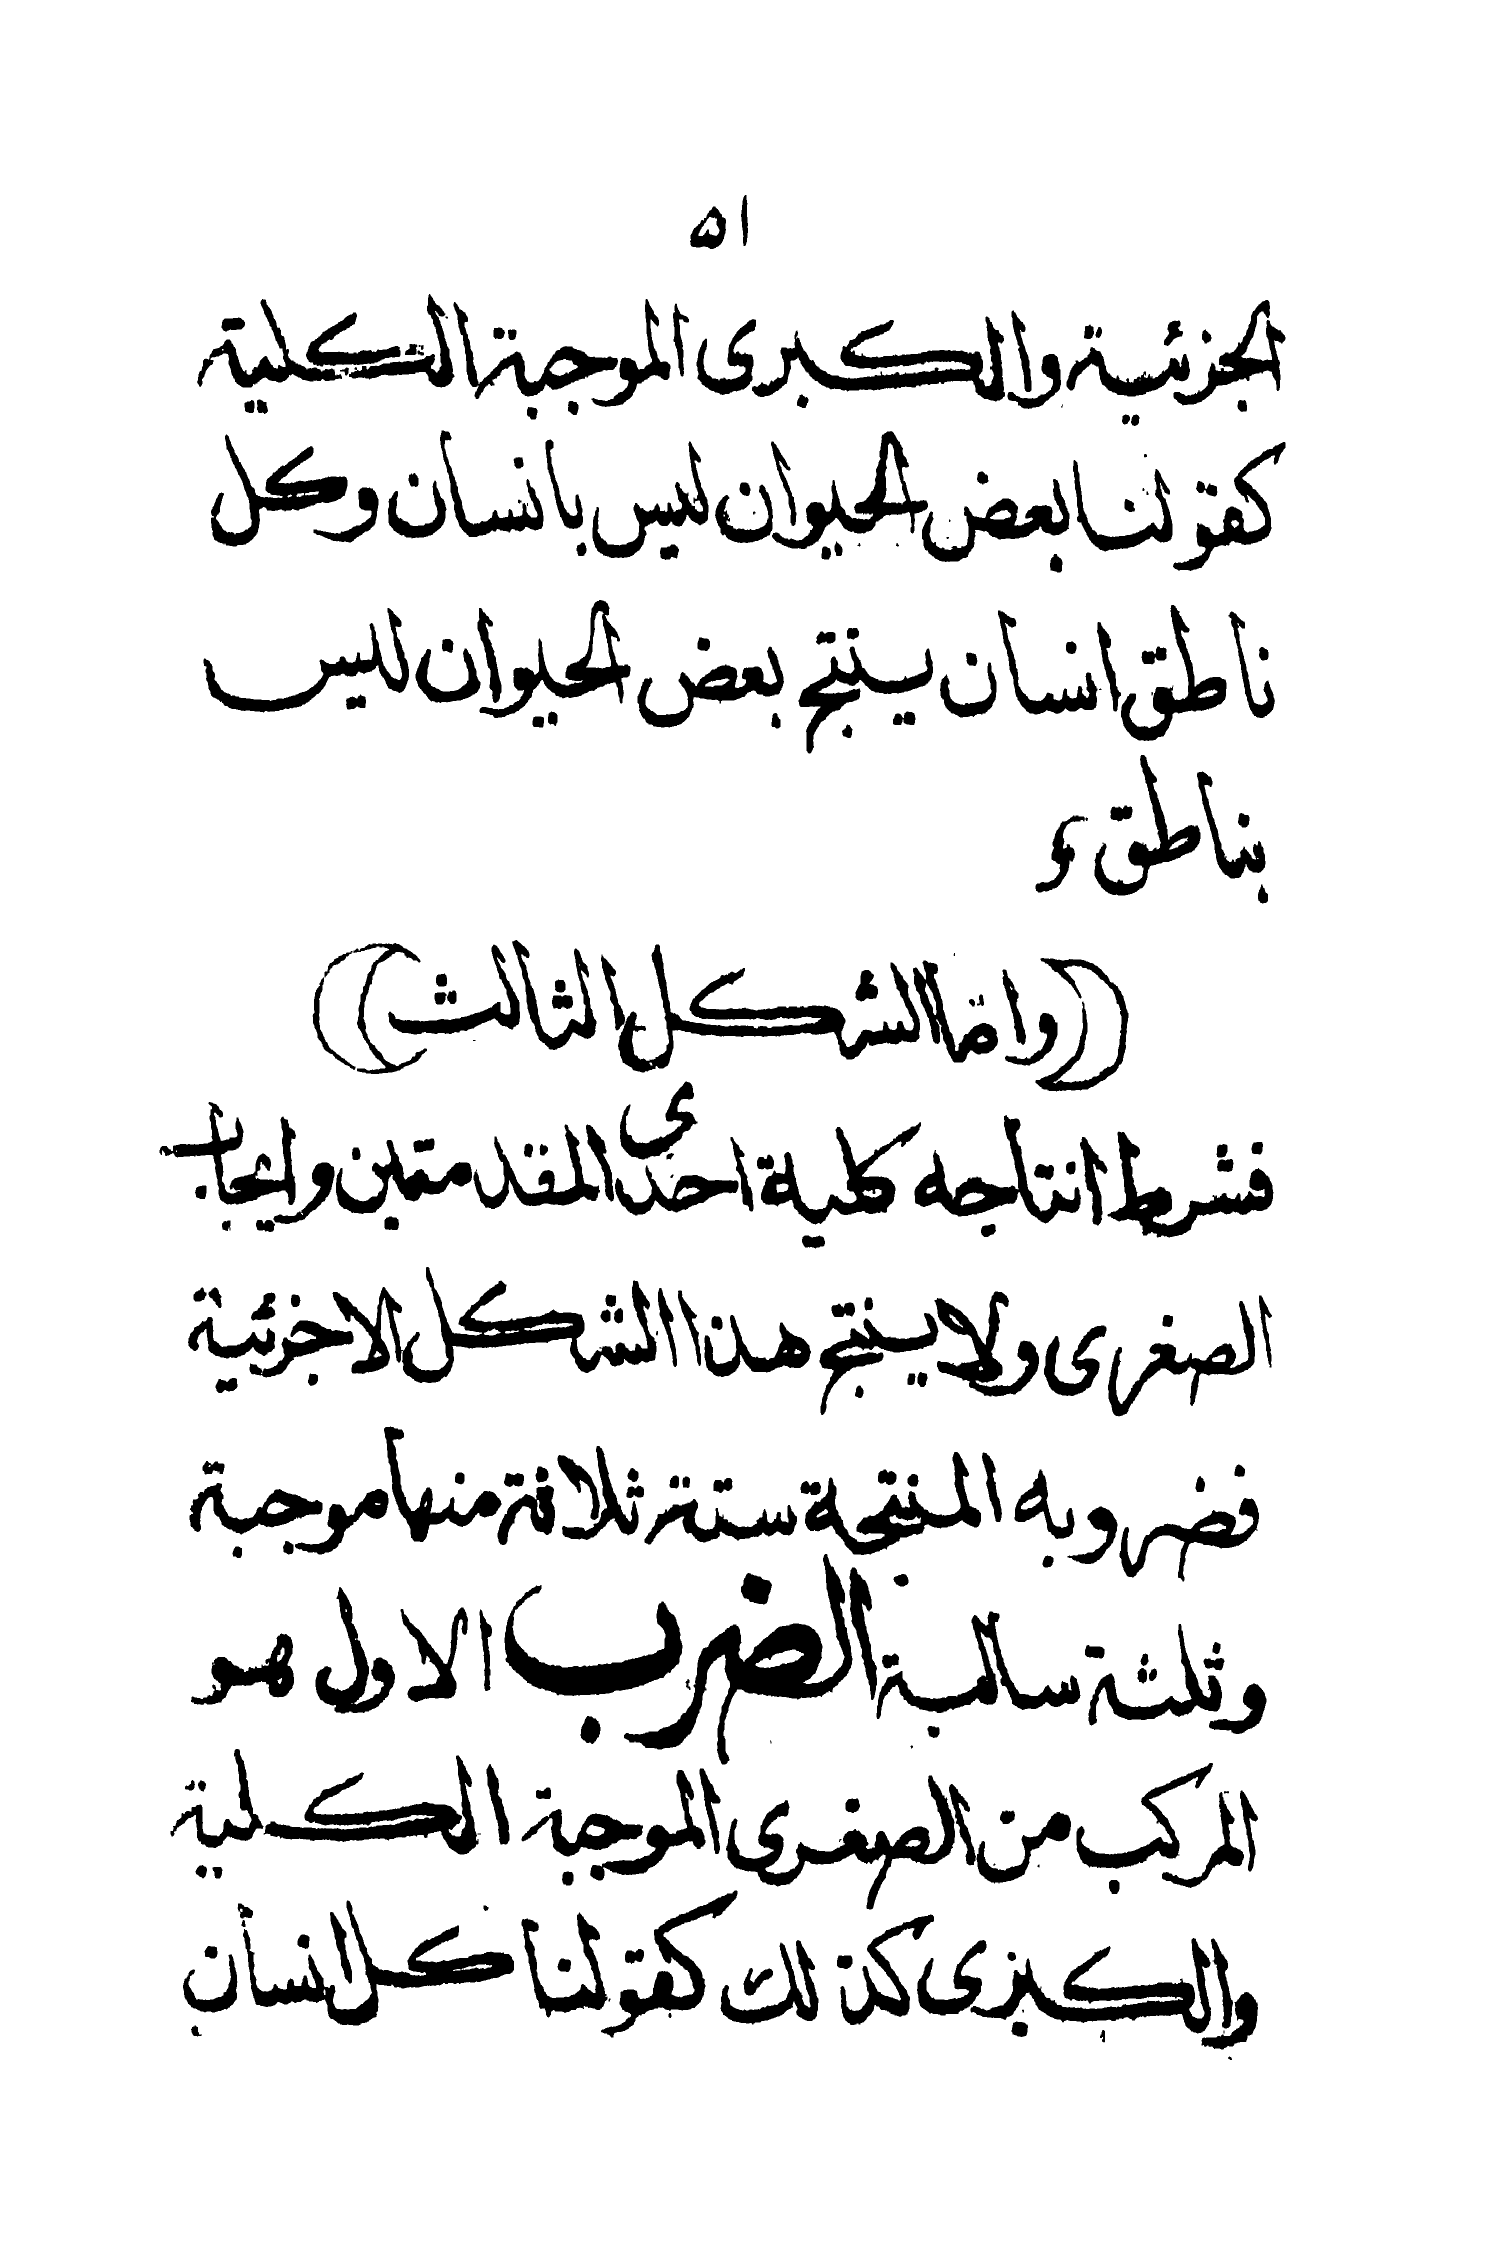 ٥١
الجزئية والكبرى الموجبة الكلية
كقولنا بعض الحيوان ليس بانسان وكل
ناطق انسان ينتج بعض الحيوان ليس
بناطق ء
(وامّا الشكل الثالث)
فشرط انتاجه كلية احدى المقدمتين وايجاب
الصغرى ولا ينتج هذا الشكل الا جزئية
فضروبه المنتجة ستة ثلاثة منها موجبة
وثلثة سالبة الضرب الاول هو
المركب من الصغرى الموجبة الكلية
والكبرى كذلك كقولنا كل انسان